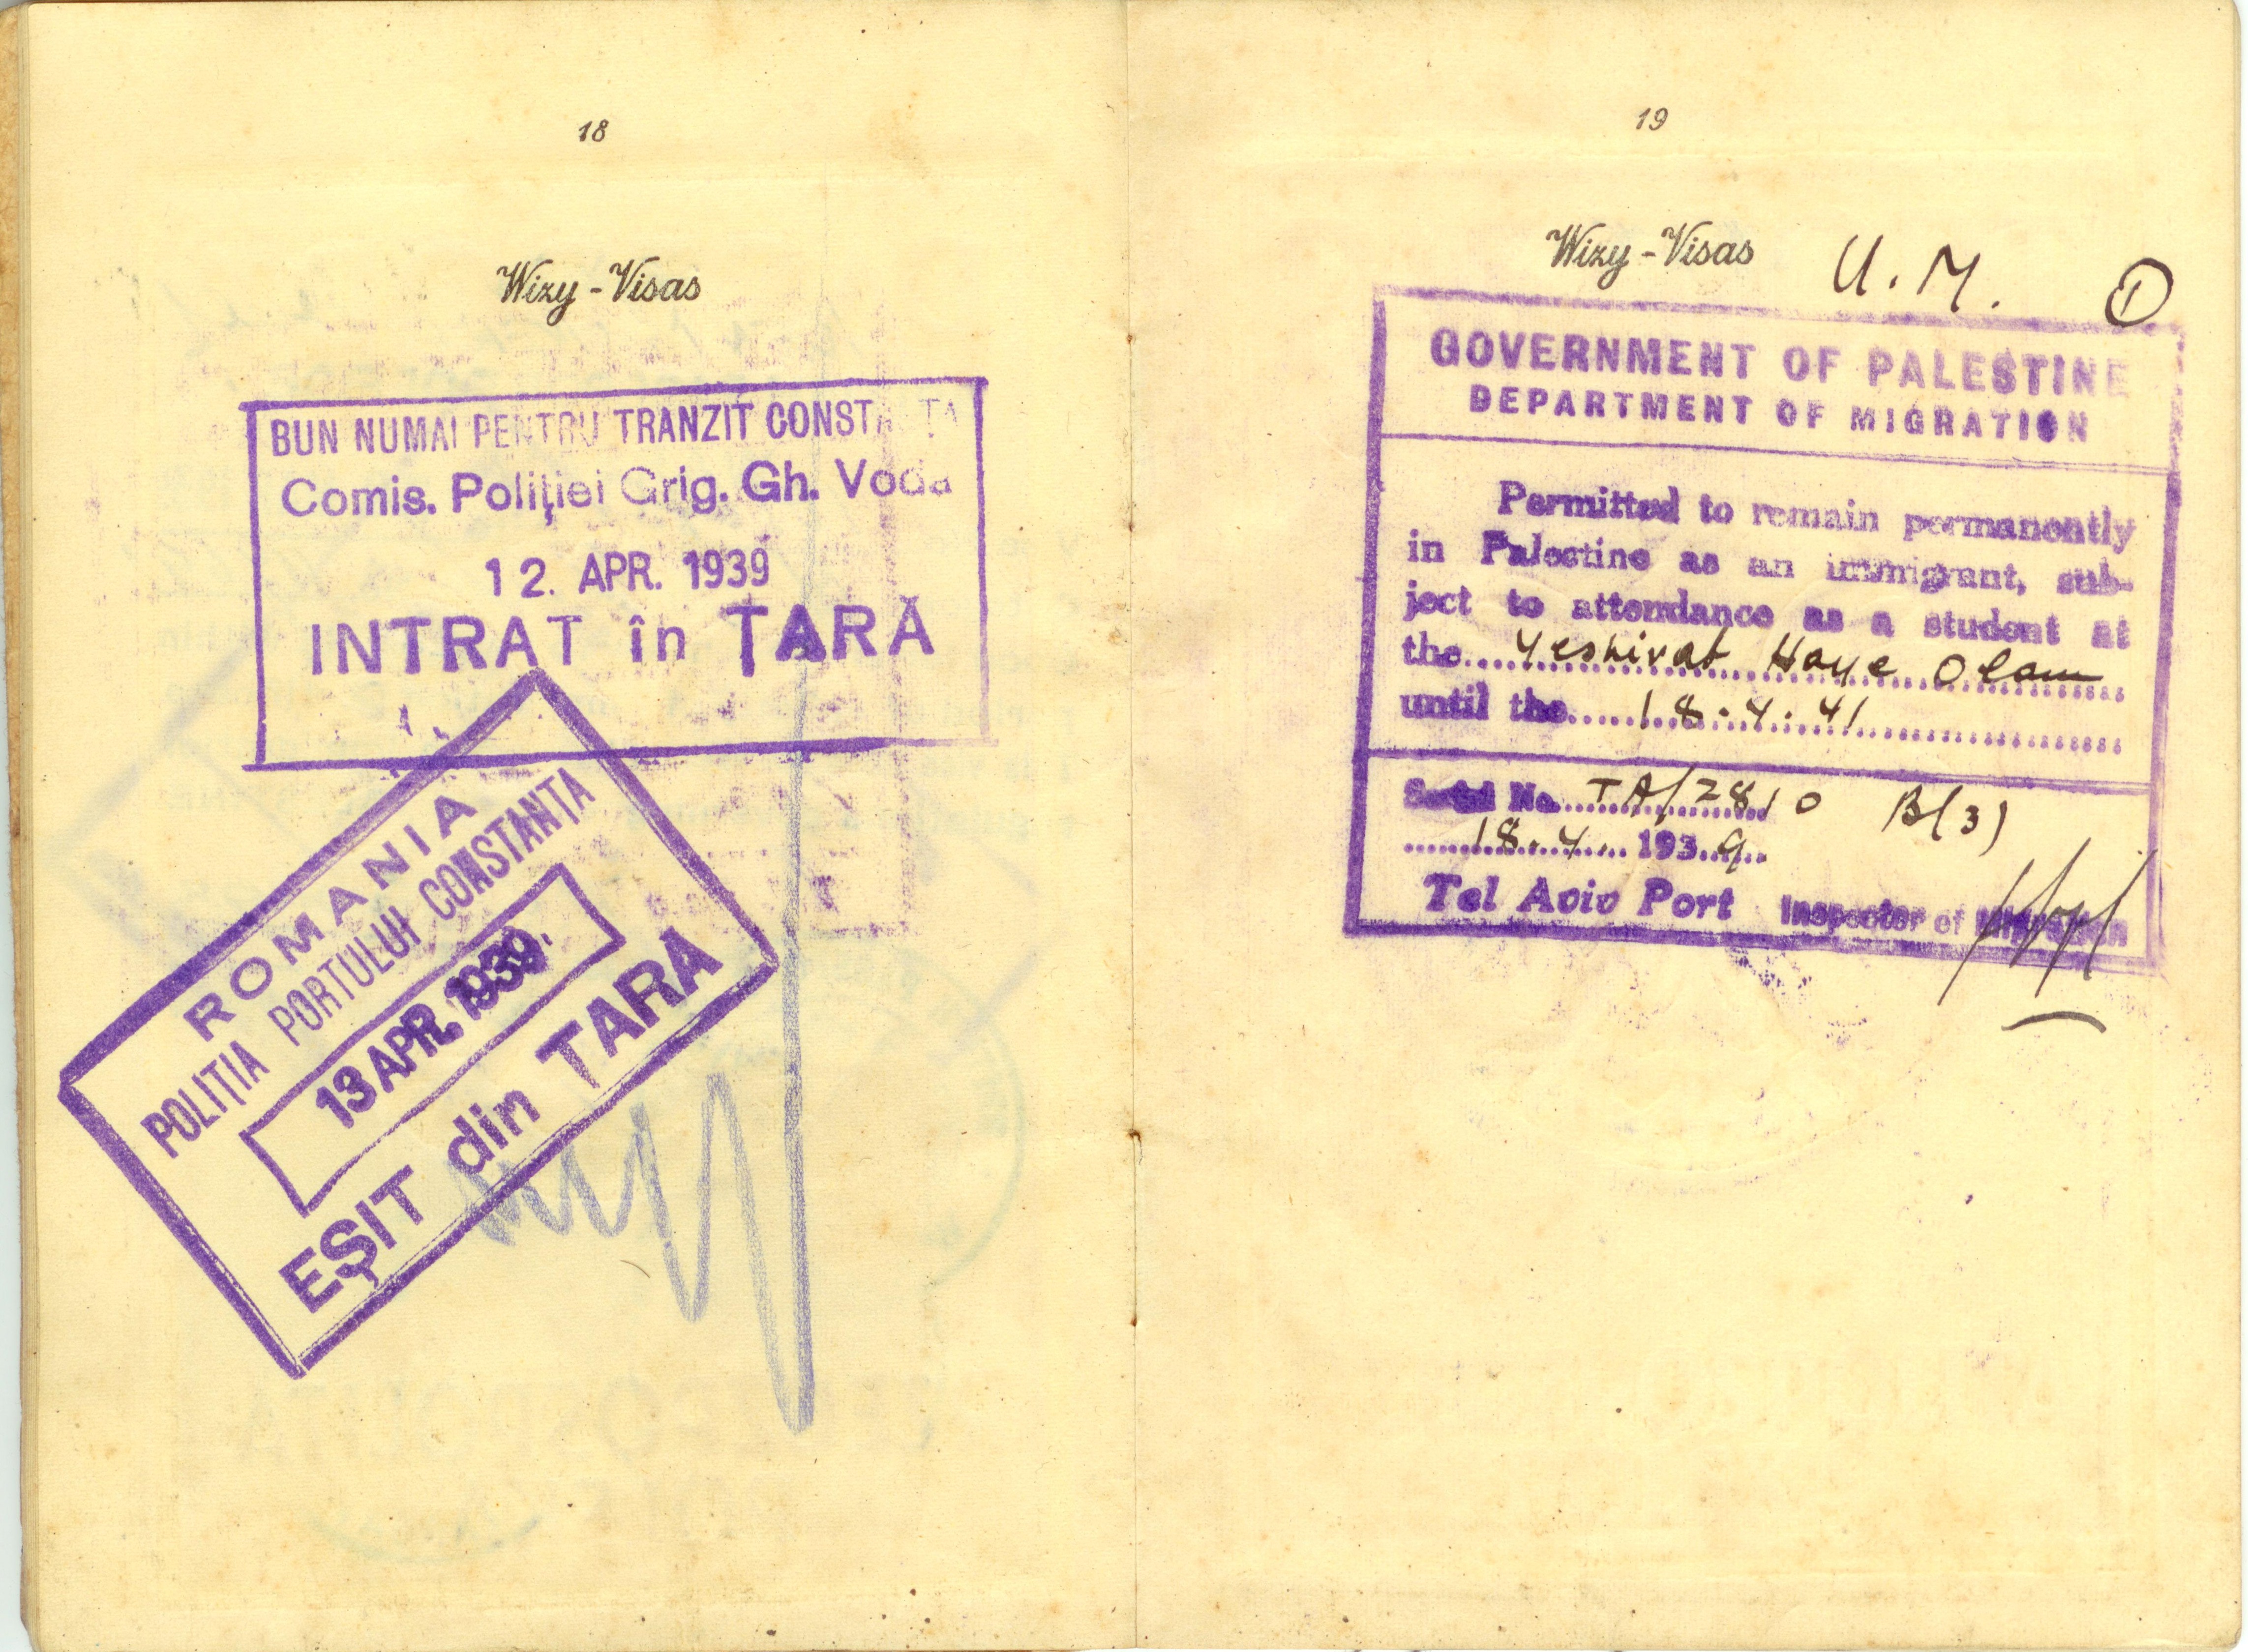 18
Wizy - Visas
BUN NUMAI PENTRU TRANZIT CONSTANȚA
Comis. Poliţiei Grig. Gh. Voda
12. APR. 1939
INTRAT în ȚARĂ
ROMANIA
POLIȚIA PORTULUI CONSTANȚA
13 APR. 1939.
EŞIT din TARĂ
19
Wizy - Visas
U. M. 1
GOVERNMENT OF PALESTINE
DEPARTMENT OF MIGRATION
Permitted to remain permanently
in Palestine as an immigrant, sub-
ject to attendance as a student at
the....Yeshivat Haye Olam....
until the....18.4.41....
Serial No....TA/2810 B(3)
....18.4....1939..
Tel Aviv Port Inspector of Migration